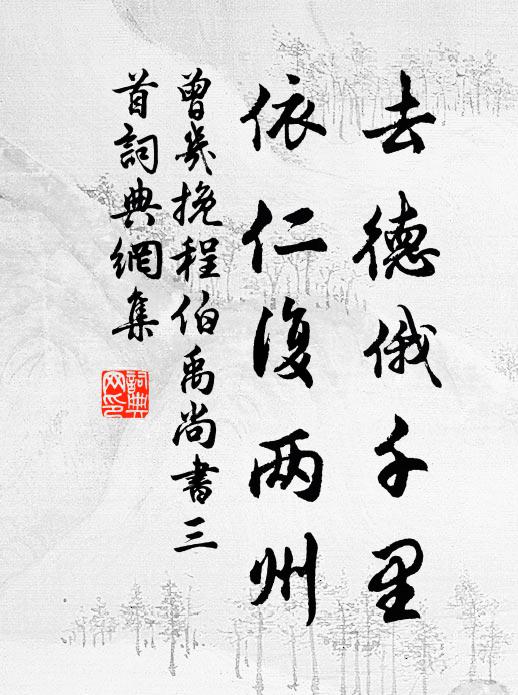 去德俄千里
依仁復两州
曾幾挽程伯禹尚書三
首詞典網集
詞典
网印